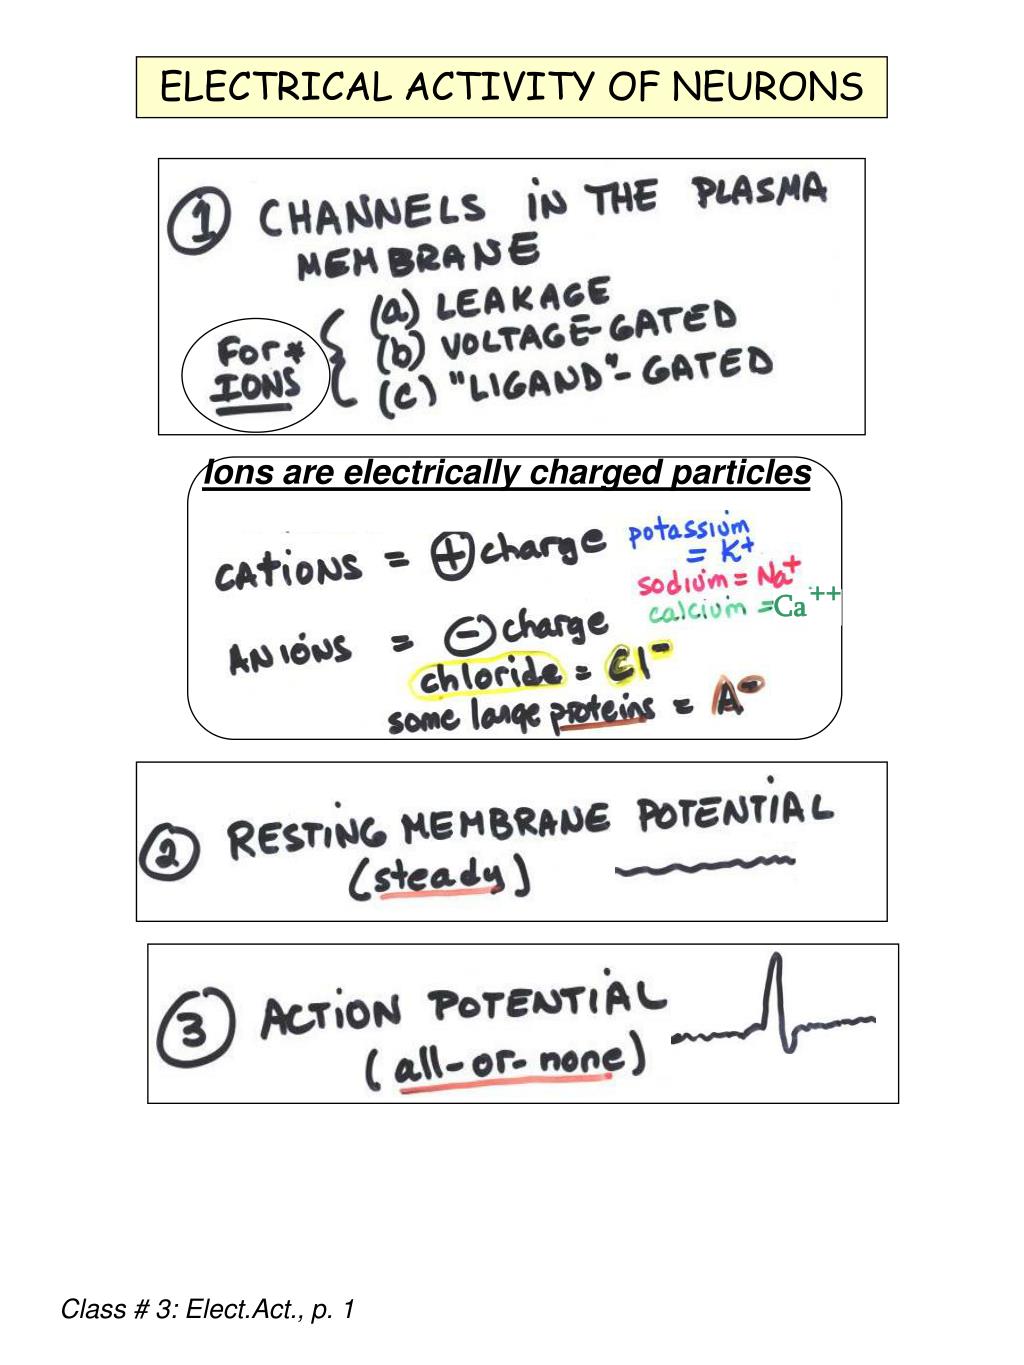 ELECTRICAL ACTIVITY OF NEURONS
① CHANNELS iN THE PLASMA
MEMBRANE
(a) LEAKAGE
(b) VOLTAGE-GATED
(c) "LIGAND"-GATED
For*
IONS
Ions are electrically charged particles
CAtiONS = ⊕ charge
potassium
= K⁺
sodium = Na⁺
calcium = Ca⁺⁺
ANIONS = ⊖ charge
chloride = Cl⁻
some large proteins = A⁻
② RESTING MEMBRANE POTENTIAL
(steady)
③ ACTION POTENTIAL
(all-or-none)
Class # 3: Elect.Act., p. 1